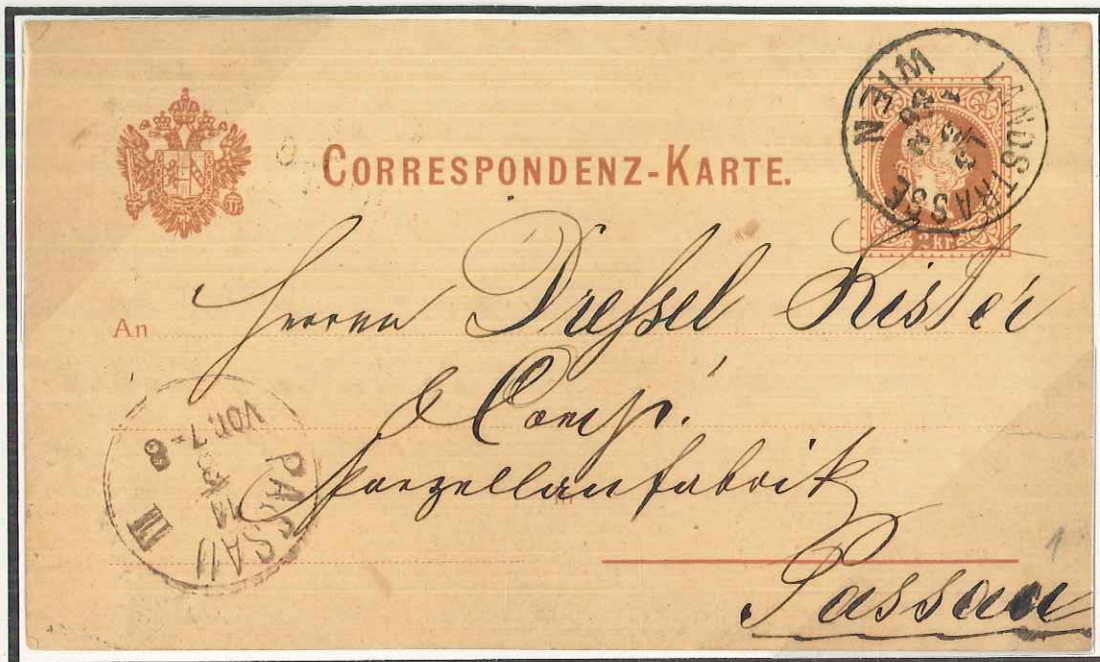 CORRESPONDENZ-KARTE.
LANDSTRASSE
WIEN
2 kr.
An Herrn Dressel Kister
& Comp.
Porzellanfabrik
in
Passau
PASSAU III
VOR. 7-8